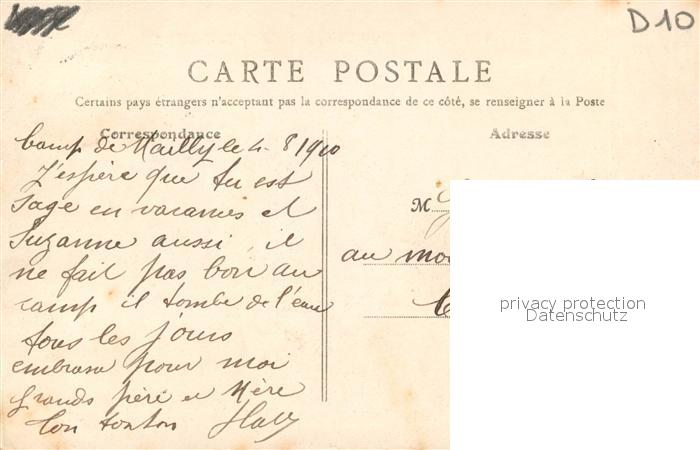 D10
CARTE POSTALE
Certains pays étrangers n'acceptant pas la correspondance de ce côté, se renseigner à la Poste
Correspondance
Adresse
Camp de Mailly le 4 8 1910
J'espère que tu est
sage en vacances et
Suzanne aussi, il
ne fait pas bon au
camp il tombe de l'eau
tous les jours
embrasse pour moi
grands père et Mère
ton tonton
M
au mo
privacy protection
Datenschutz